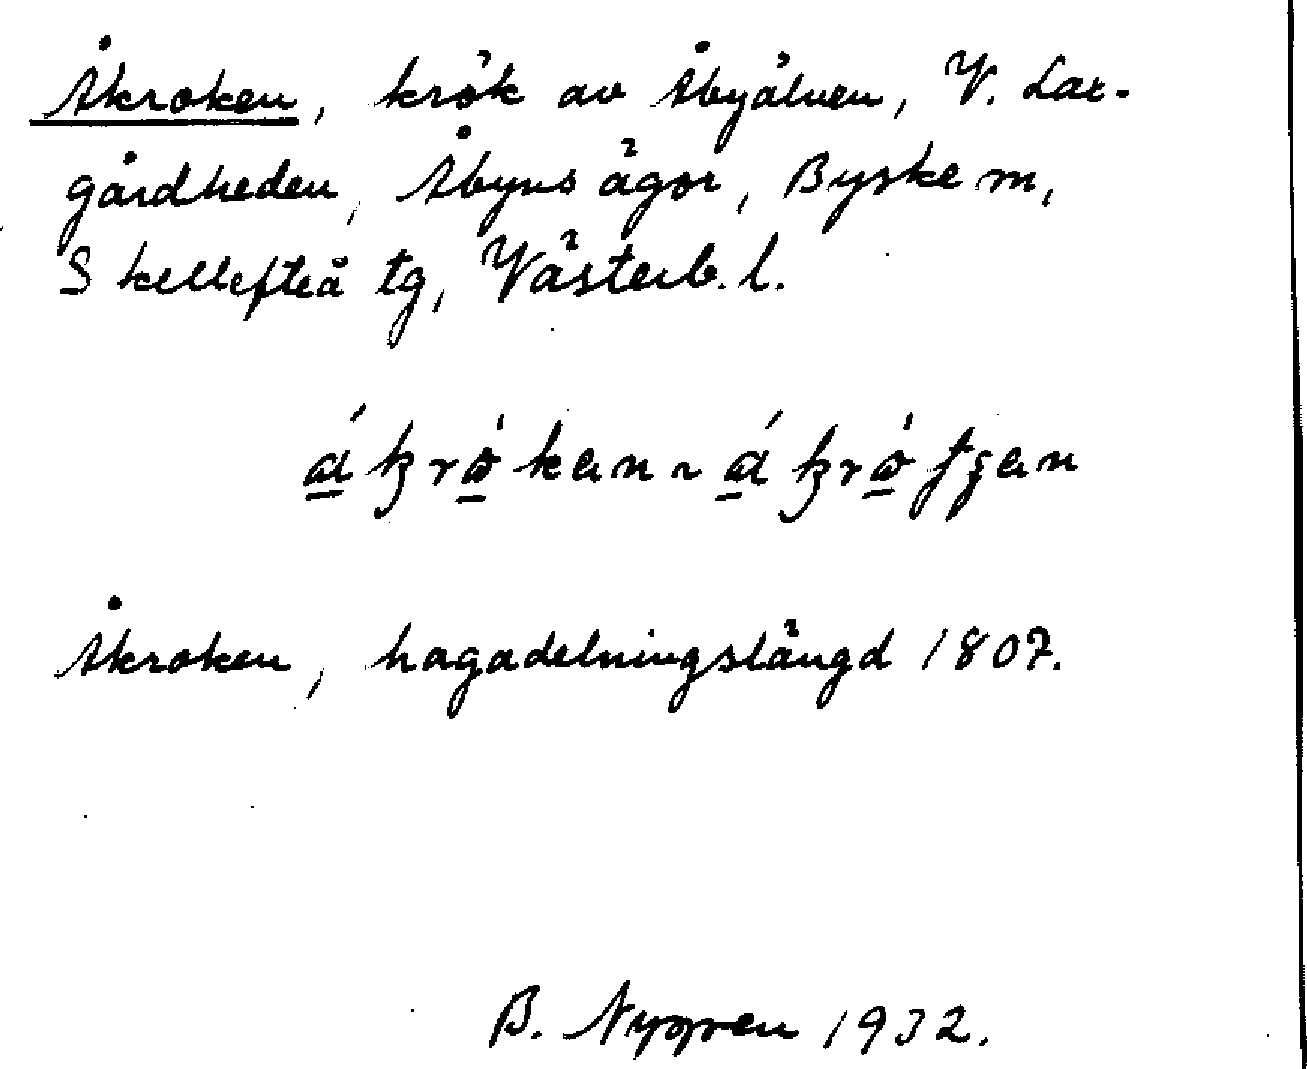 Åkroken, krök av Åbyälven, V. Lar-
gårdheden, Åbyns ägor, Byske sn,
Skellefteå tg, Västerb. l.
Åkroken, hagadelningslängd 1807.
B. Nygren 1932.